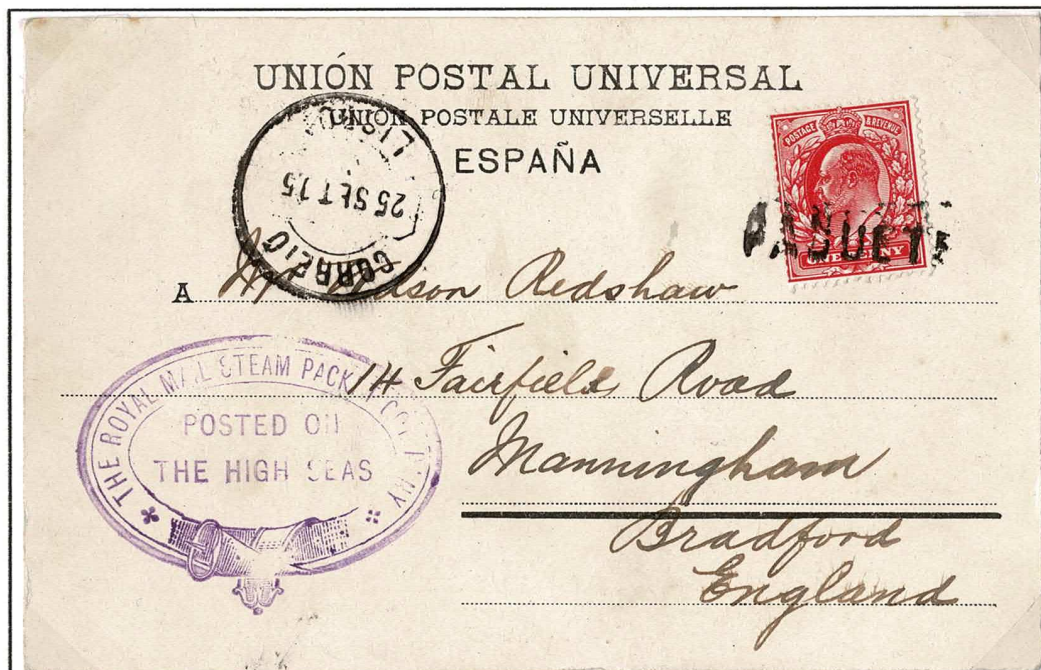 UNIÓN POSTAL UNIVERSAL
UNION POSTALE UNIVERSELLE
ESPAÑA
POSTAGE & REVENUE
ONE PENNY
PAQUETE
CORREIO
25 SET 15
A Mr Redshaw
14 Fairfield Road
Manningham
Bradford
England
THE ROYAL MAIL STEAM PACKET COMPANY
POSTED ON
THE HIGH SEAS